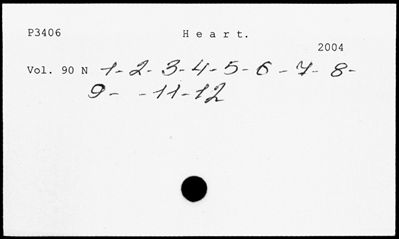 P3406 Heart.
2004
Vol. 90 N 1-2-3-4-5-6-7-8-
9- -11-12